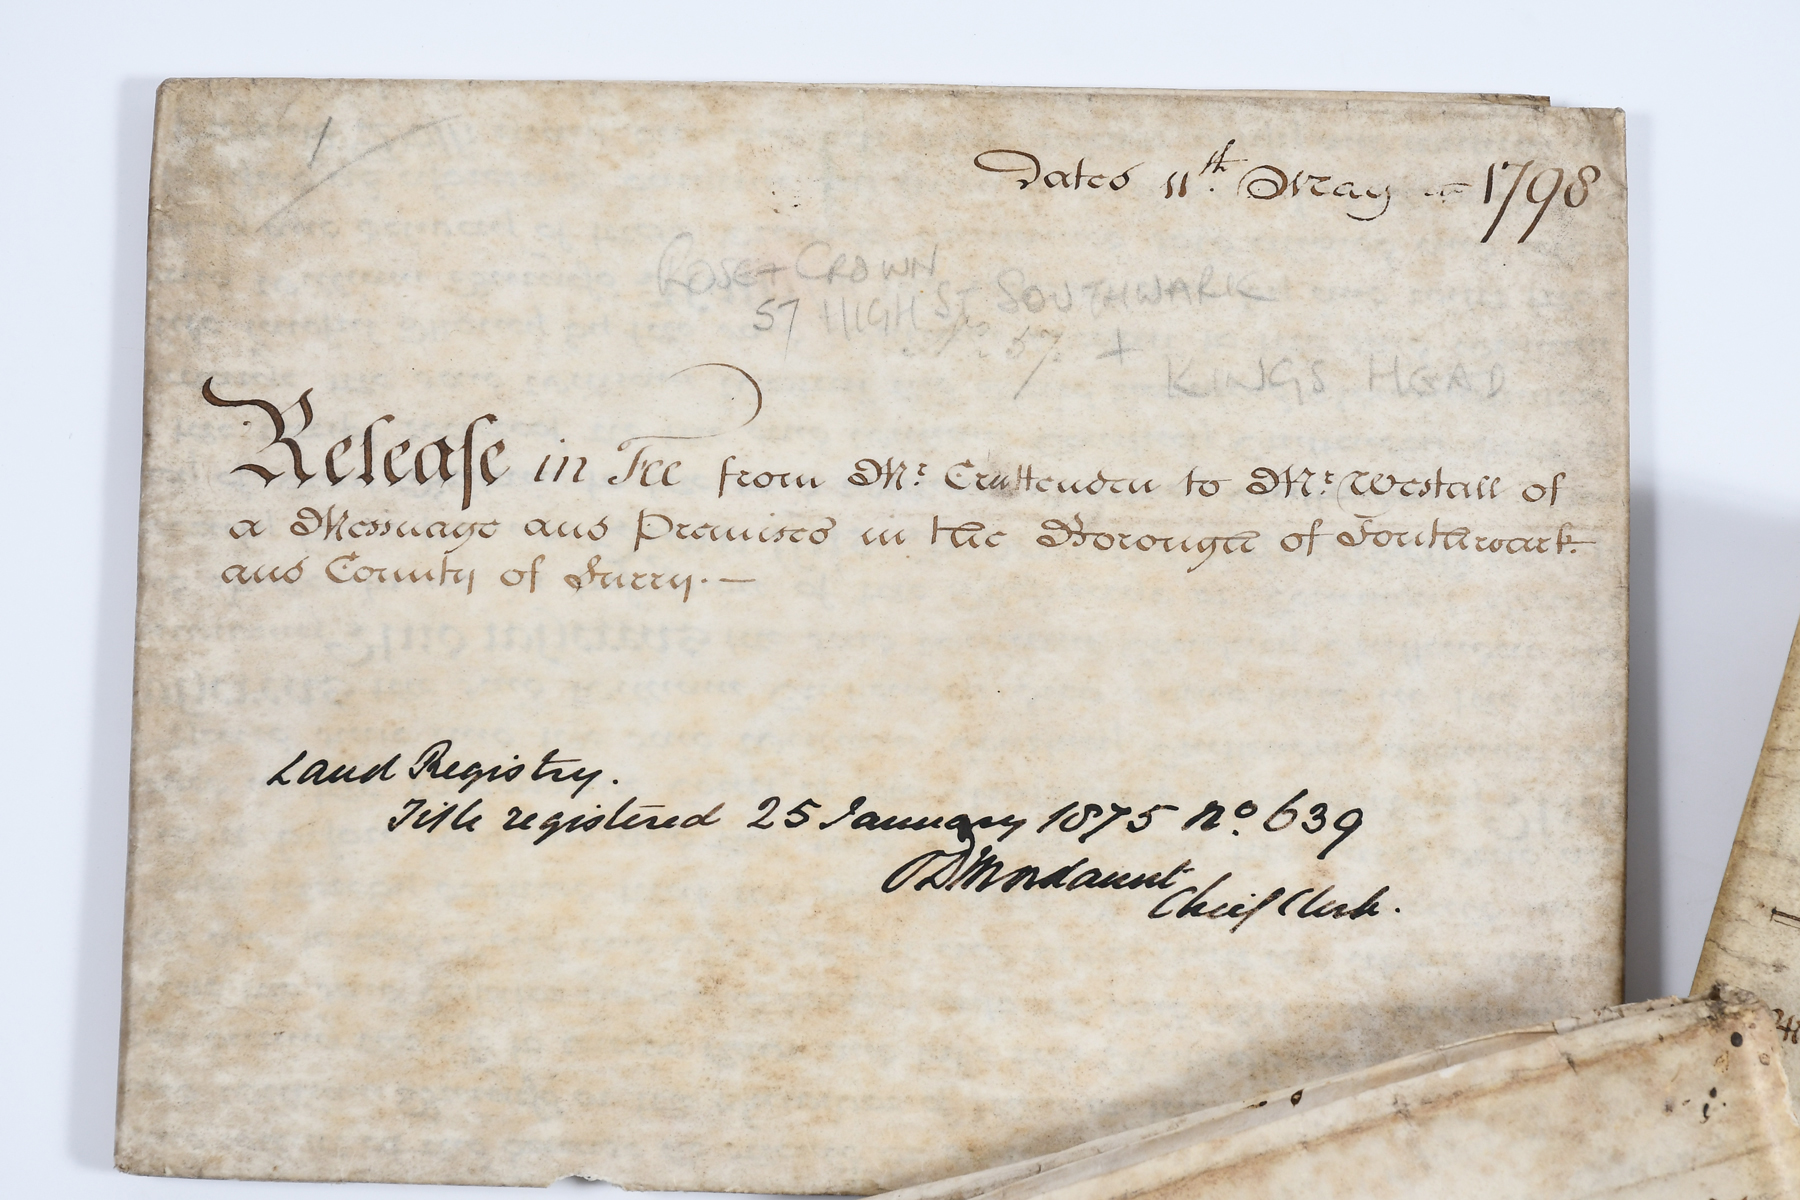 1
Dated 11th. May 1798
ROSE + CROWN
57 HIGH ST SOUTHWARK
57 +
KINGS HEAD
Release in Fee from Mr. Cruttenden to Mr. Westall of
a Messuage and Premises in the Borough of Southwark
and County of Surry. —
Land Registry.
Title registered 25 January 1875 No. 639
Mordaunt
Chief Clerk.